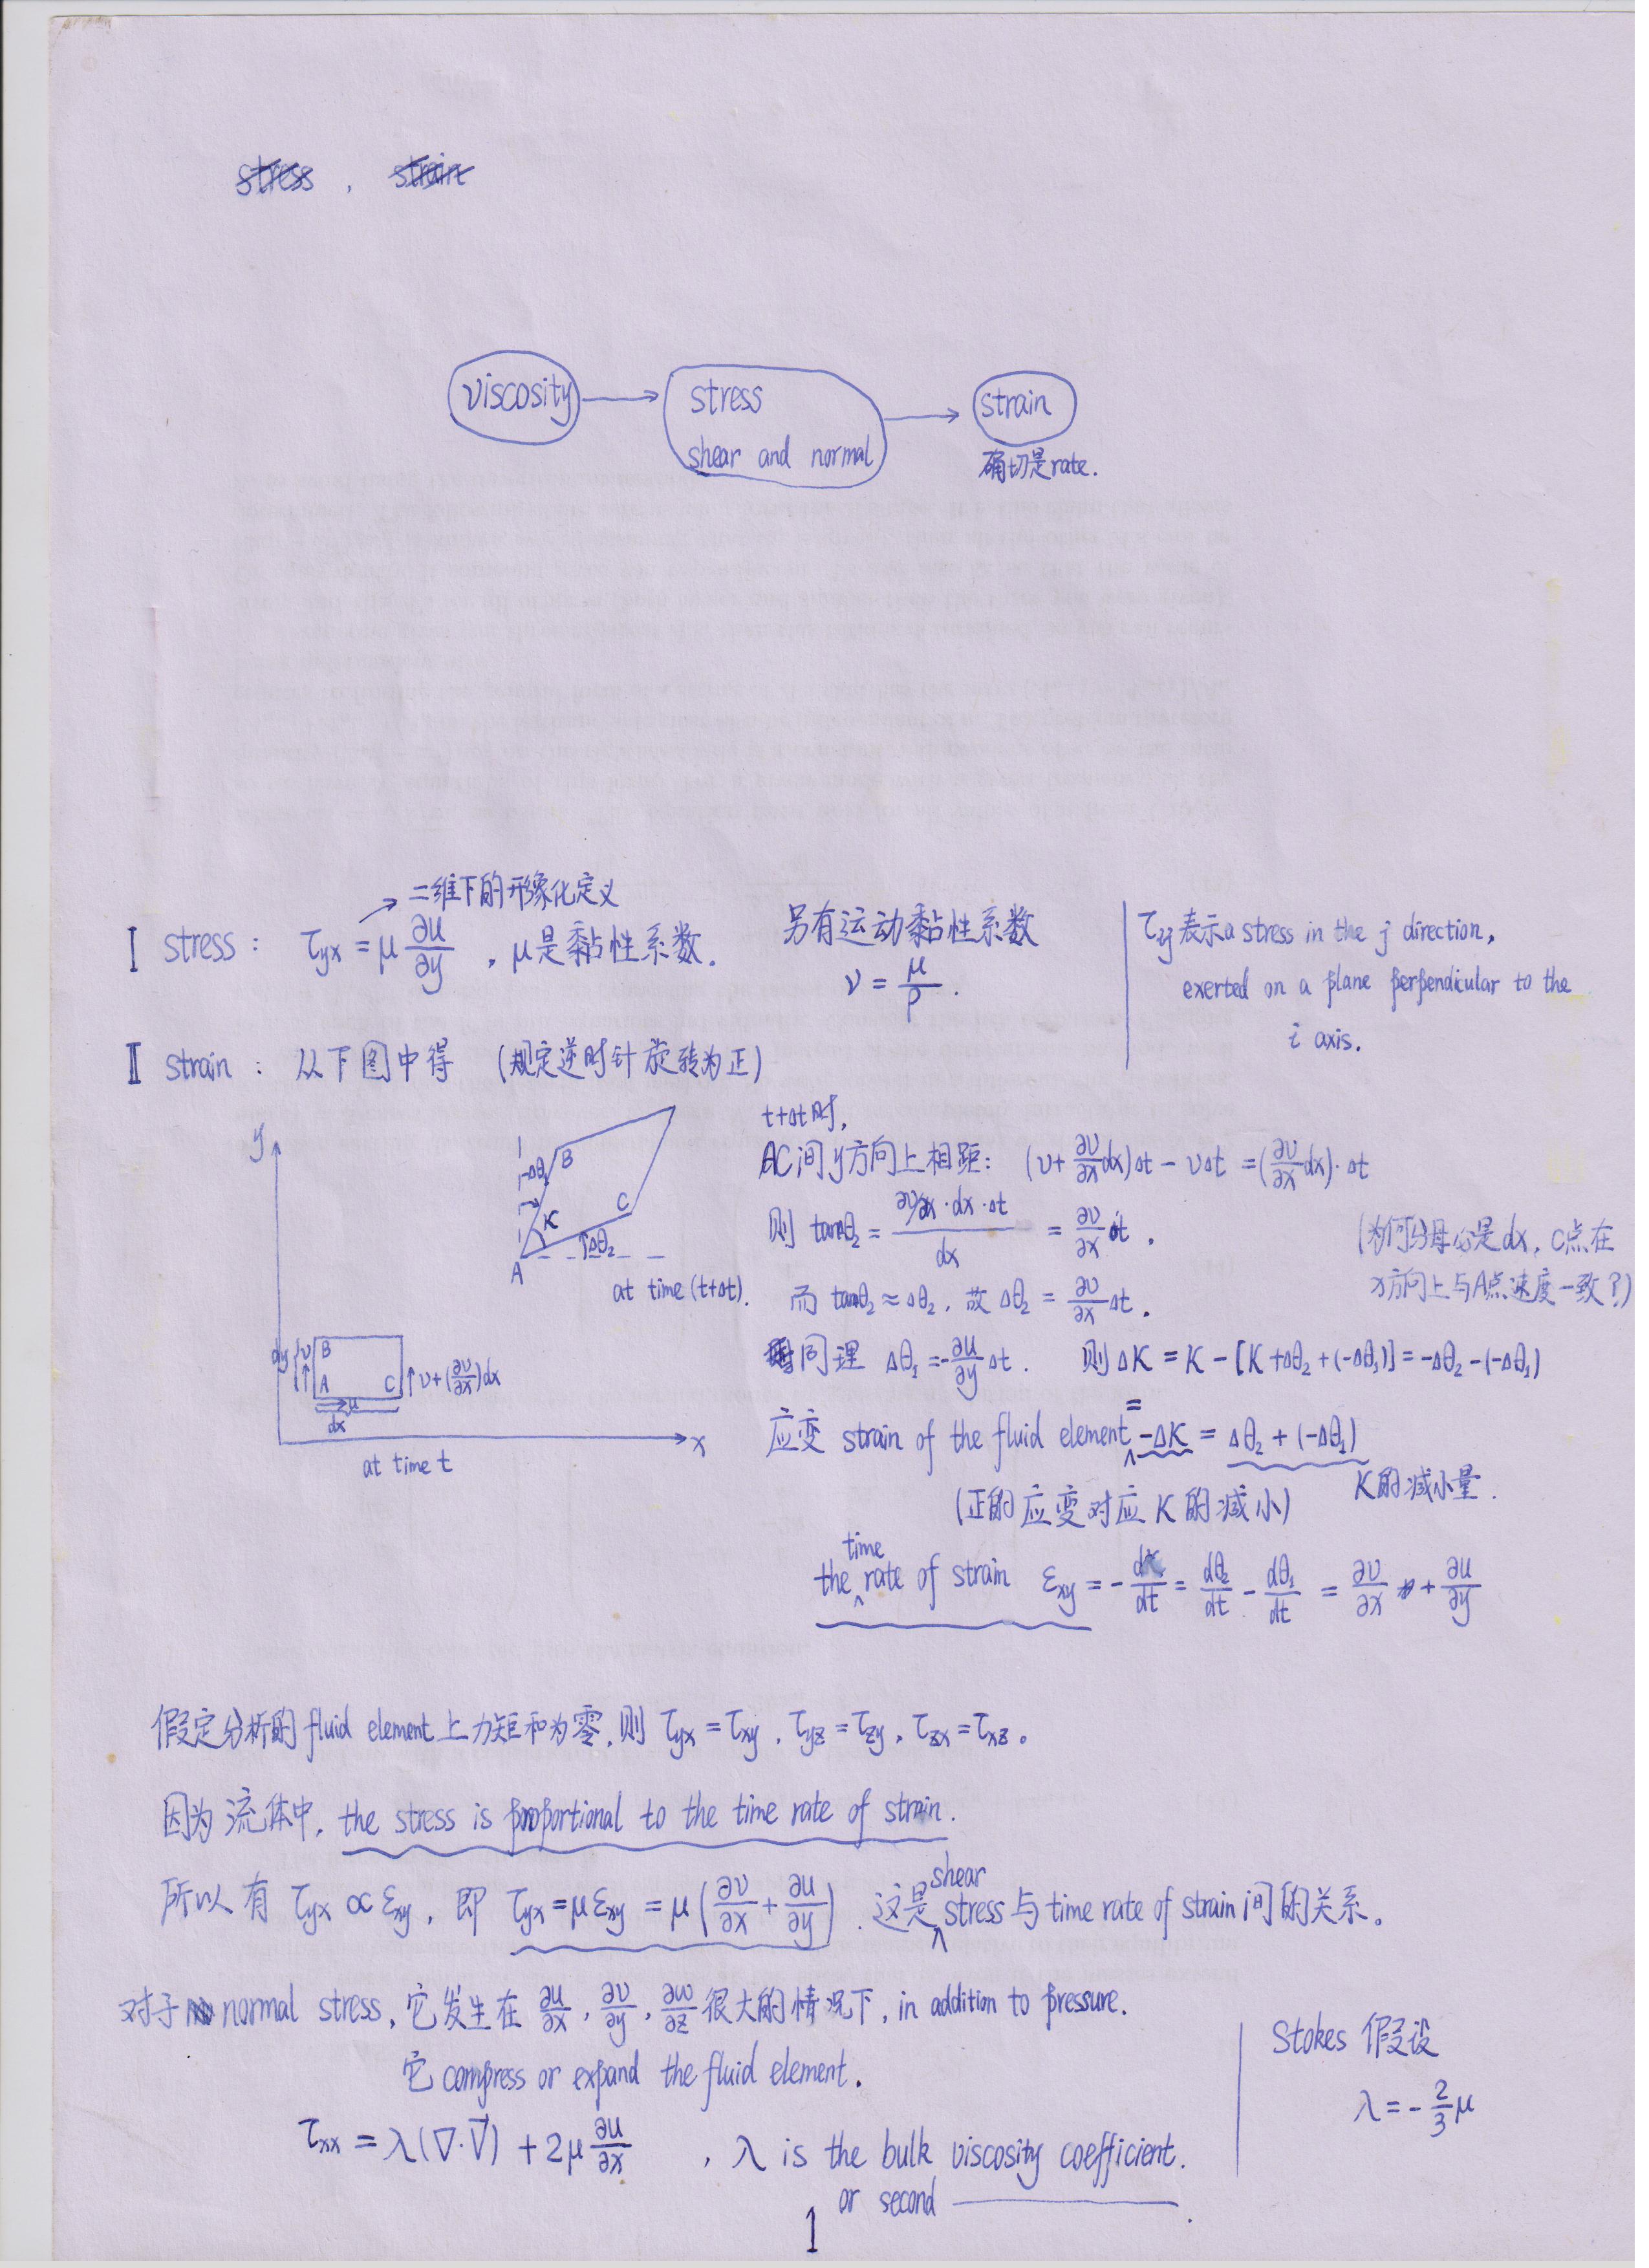 stress , strain
viscosity → stress → strain
shear and normal
确切是rate.
→ 二维下的形象化定义
I stress : τyx = μ ∂u/∂y , μ是黏性系数.
另有运动黏性系数
ν = μ/ρ .
τij 表示a stress in the j direction,
exerted on a plane perpendicular to the
i axis.
II strain : 以下图中得 (规定逆时针旋转为正)
y
-Δθ1
B
K
C
Δθ2
A
at time (t+Δt).
dy
v
B
A
C
v+(∂v/∂x)dx
u
dx
x
at time t
t+Δt时,
AC间y方向上相距: (v+∂v/∂x dx)Δt - vΔt = (∂v/∂x dx)·Δt
则 tanθ2 = ∂v/∂x·dx·Δt / dx = ∂v/∂x Δt .
(为何分母必是dx, C点在
x方向上与A点速度一致?)
而 tanθ2 ≈ Δθ2 , 故 Δθ2 = ∂v/∂x Δt .
同理 Δθ1 = -∂u/∂y Δt . 则 ΔK = K - [K+Δθ2+(-Δθ1)] = -Δθ2-(-Δθ1)
应变 strain of the fluid element = -ΔK = Δθ2 + (-Δθ1)
K的减小量.
(正的应变对应K的减小)
the time rate of strain εxy = -dK/dt = dθ2/dt - dθ1/dt = ∂v/∂x + ∂u/∂y
假定分析的fluid element上力矩和为零, 则 τyx = τxy , τyz = τzy , τzx = τxz 。
因为流体中, the stress is proportional to the time rate of strain.
所以有 τyx ∝ εxy , 即 τyx = μεxy = μ(∂v/∂x + ∂u/∂y) . 这是 shear stress与time rate of strain间的关系。
对于 normal stress, 它发生在 ∂u/∂x , ∂v/∂y , ∂w/∂z 很大的情况下, in addition to pressure.
它 compress or expand the fluid element.
τxx = λ(∇·V⃗) + 2μ ∂u/∂x , λ is the bulk viscosity coefficient.
or second ———.
Stokes 假设
λ = -2/3 μ
1